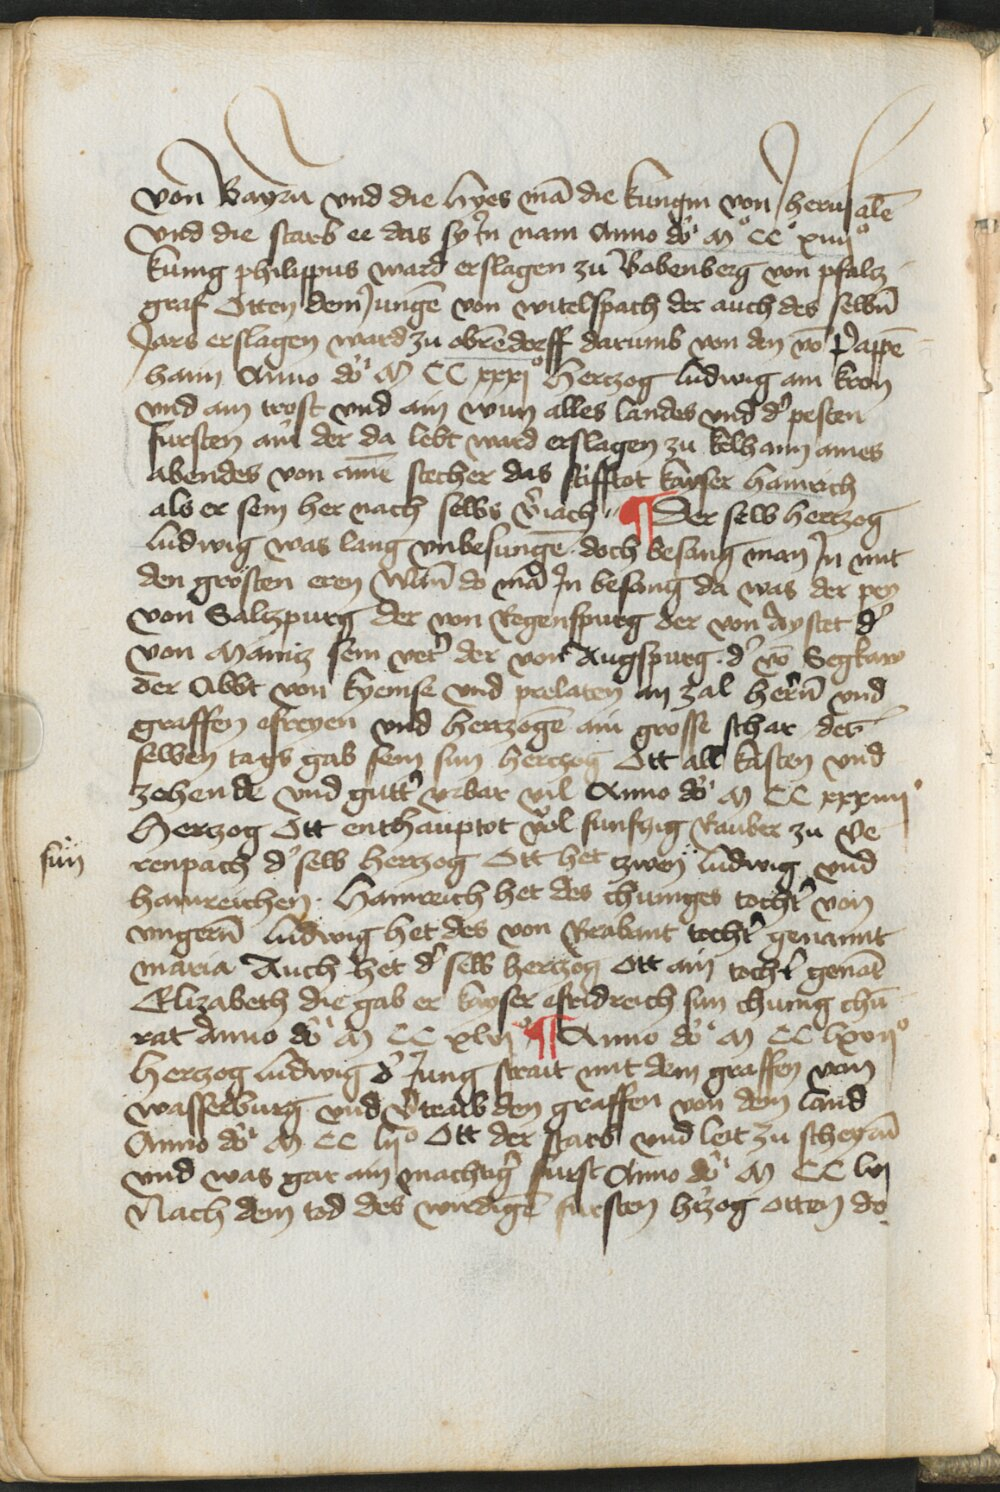 von Bayrn vnd die hyes mā die kungin von Iherusalē
vnd die starb ee das sy In nam Anno dōi M° CC° xiiii°
kunig philippus ward erslagen zu Bobenberg von pfaltz
graf Otten dem Iungē von witelspach der auch des selbn̄
Iars erslagen ward zu obrēdorff darumb von den vō Pappē
haim Anno dōi M CC xxxi° Hertzog ludwig ain kron
vnd ain trost vnd ain wun alles landes vnd d' pesten
fursten ain der da lebt ward erslagen zu kelhaim aines
abendes von aimē stecher das stifftot kayser hainrich
als er sein her nach selbs v'iach ¶ Der selb hertzog
ludwig was lang vnbesungē . doch besang man In mit
den grösten eren wān do mā In besang da was der
von Saltzpurg der von Regenspurg der von Aystet d'
von Maintz sein vet' der von Augspurg . d' vō Segkaw
der Abbt von kyemse vnd prelaten an zal hern̄ vnd
graffen efreyen vnd hertzogē ain grosse schar des
selben tags gab sein sun hertzog Ott all kasten vnd
zehende vnd gutt' vrbar vil Anno dōi M CC xxxiiii°
Hertzog Ott enthauptot wol funfzig Rauber zu Ve
renpach d' selb hertzog Ott het zwen ludwig vnd
sun
hainreichen . Hainreich het des chuniges tocht' von
vngern̄ ludwig het des von Brabant tocht' genannt
maria Auch het d' selb hertzog Ott ain tocht' genāt
Elizabeth die gab er kayser efridreich sun chunig chū
rat Anno dōi M CC xlvi° ¶ Anno dōi M CC lxvii°
Hertzog ludwig d' Iung strait mit dem graffen von
wasserburg vnd v'traib den graffen von dem land
Anno dōi M CC lii° Ott der starb vnd leit zu scheyrn̄
vnd was gar ain machtig' furst Anno dōi M CC lvi
Nach dem tod des wirdigē fursten h'zog otten do